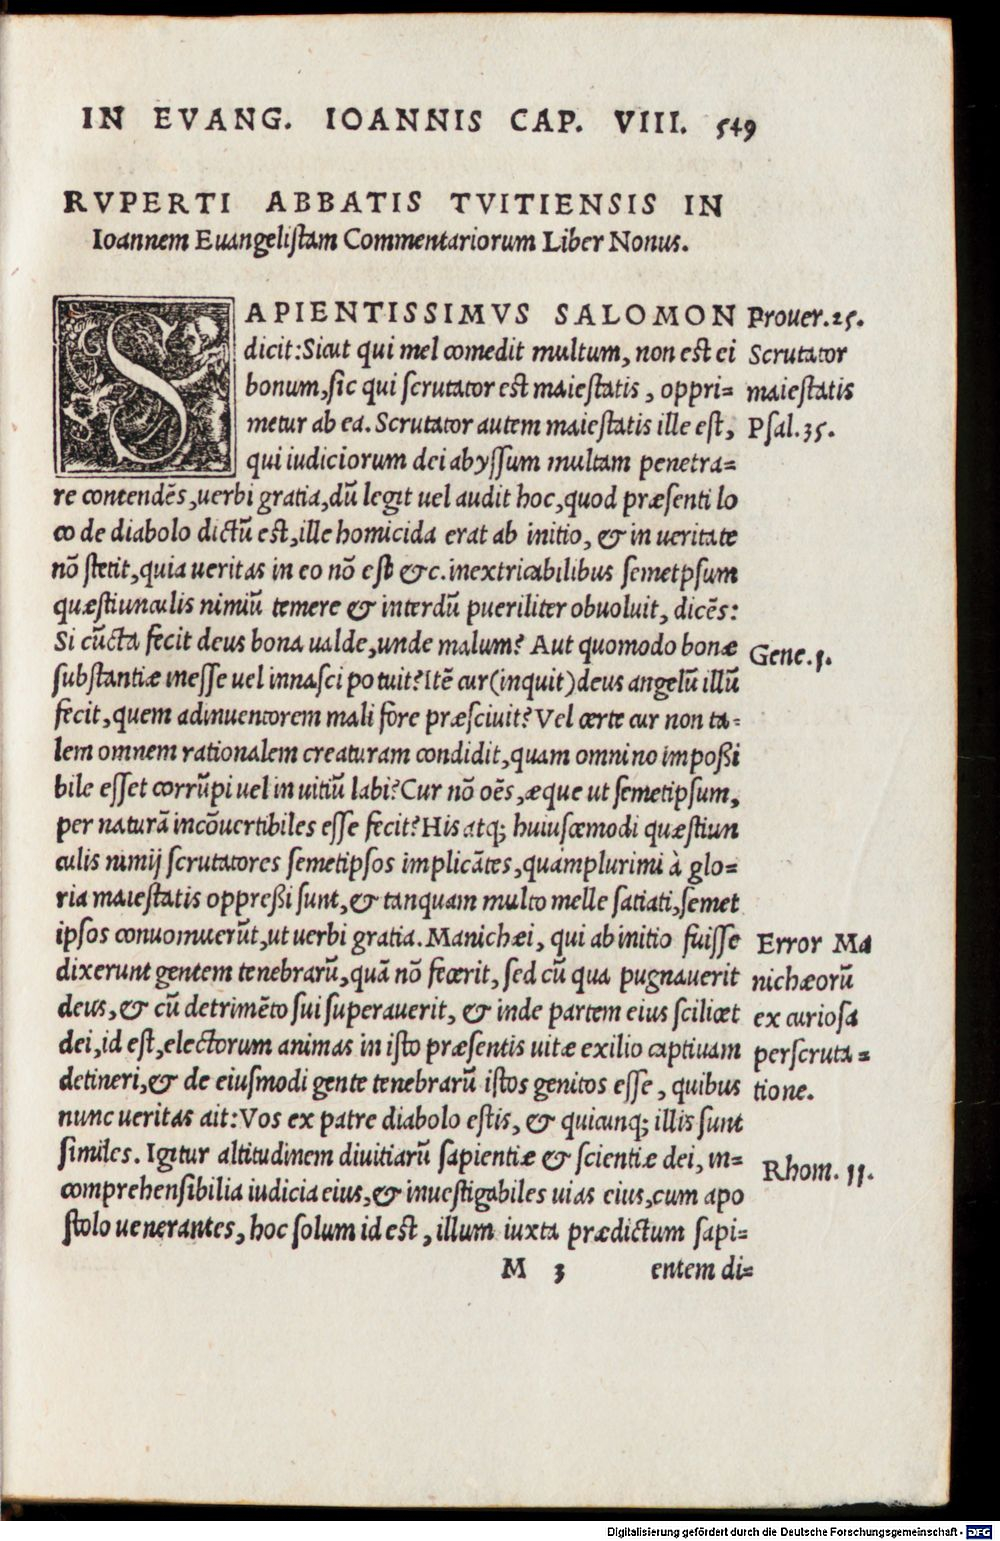 IN EVANG. IOANNIS CAP. VIII. 549
RVPERTI ABBATIS TVITIENSIS IN
Ioannem Euangeliſtam Commentariorum Liber Nonus.
SAPIENTISSIMVS SALOMON
dicit: Sicut qui mel comedit multum, non est ei
bonum, ſic qui ſcrutator est maieſtatis, oppri=
metur ab ea. Scrutator autem maieſtatis ille eſt,
qui iudiciorum dei abyſſum multam penetra=
re contendẽs, uerbi gratia, dũ legit uel audit hoc, quod præſenti lo
co de diabolo dictũ est, ille homicida erat ab initio, & in ueritate
nõ ſtetit, quia ueritas in eo nõ eſt &c. inextricabilibus ſemetpſum
quæſtiunculis nimiũ temere & interdũ pueriliter obuoluit, dicẽs:
Si cũcta fecit deus bona ualde, unde malum? Aut quomodo bonæ
ſubstantiæ ineſſe uel innaſci potuit? Itẽ cur (inquit) deus angelũ illũ
fecit, quem adinuentorem mali fore præſciuit? Vel certe cur non ta=
lem omnem rationalem creaturam condidit, quam omnino impoßi
bile eſſet corrũpi uel in uitiũ labi? Cur nõ oẽs, æque ut ſemetipſum,
per naturã incõuertibiles eſſe fecit? His atq; huiuſcemodi quæſtiun
culis nimij ſcrutatores ſemetipſos implicãtes, quamplurimi à glo=
ria maieſtatis oppreßi ſunt, & tanquam multo melle ſatiati, ſemet
ipſos conuomuerũt, ut uerbi gratia. Manichæi, qui ab initio fuiſſe
dixerunt gentem tenebrarũ, quã nõ fecerit, ſed cũ qua pugnauerit
deus, & cũ detrimẽto ſui ſuperauerit, & inde partem eius ſcilicet
dei, id eſt, electorum animas in iſto præſentis uitæ exilio captiuam
detineri, & de eiuſmodi gente tenebrarũ iſtos genitos eſſe, quibus
nunc ueritas ait: Vos ex patre diabolo eſtis, & quicunq; illis ſunt
ſimiles. Igitur altitudinem diuitiarũ ſapientiæ & ſcientiæ dei, in=
comprehenſibilia iudicia eius, & inueſtigabiles uias eius, cum apo
ſtolo uenerantes, hoc ſolum id est, illum iuxta prædictum ſapi=
M 3 entem di=
Prouer. 25.
Scrutator
maieſtatis
Pſal. 35.
Gene. 1.
Error Ma
nichæorũ
ex curioſa
perſcruta=
tione.
Rhom. 11.
Digitalisierung gefördert durch die Deutsche Forschungsgemeinschaft - DFG